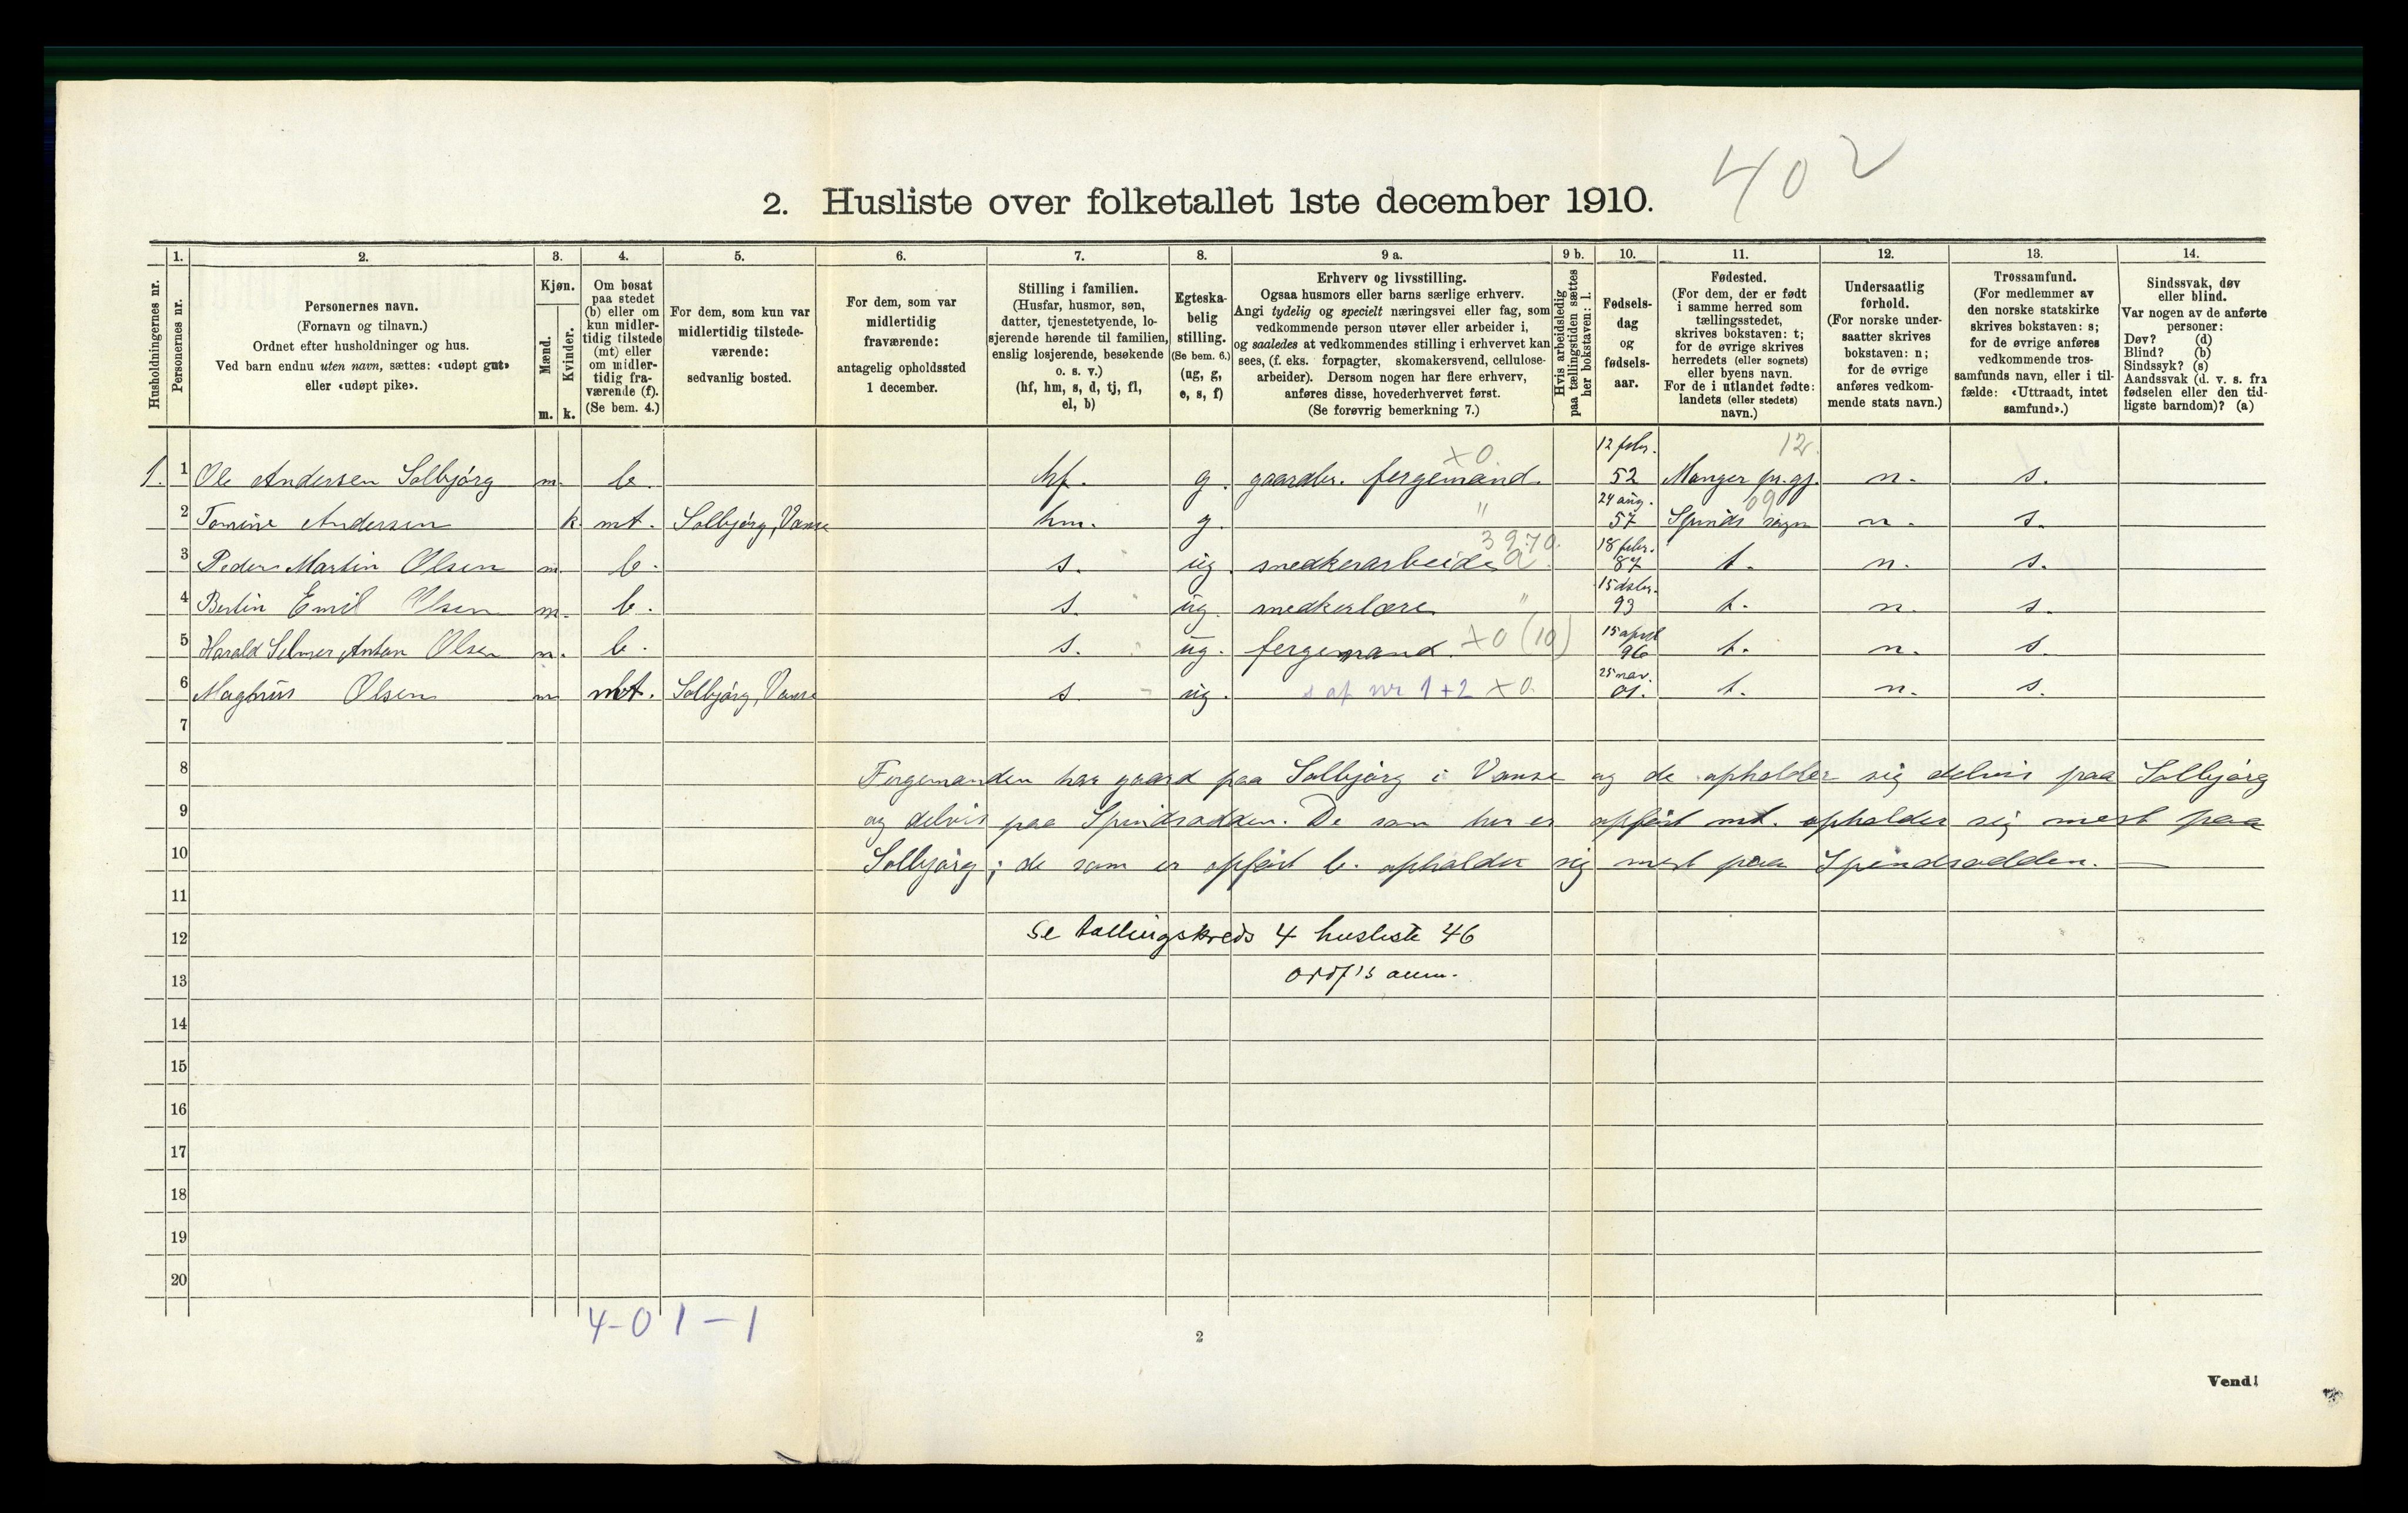 402
2. Husliste over folketallet 1ste december 1910.
Husholdningernes nr.
1.
Personernes nr.
2.
Personernes navn.
(Fornavn og tilnavn.)
Ordnet efter husholdninger og hus.
Ved barn endnu uten navn, sættes: «udøpt gut»
eller «udøpt pike».
3.
Kjøn.
Mænd.
m.
Kvinder.
k.
4.
Om bosat
paa stedet
(b) eller om
kun midler-
tidig tilstede
(mt) eller
om midler-
tidig fra-
værende (f).
(Se bem. 4.)
5.
For dem, som kun var
midlertidig tilstede-
værende:
sedvanlig bosted.
6.
For dem, som var
midlertidig
fraværende:
antagelig opholdssted
1 december.
7.
Stilling i familien.
(Husfar, husmor, søn,
datter, tjenestetyende, lo-
sjerende hørende til familien,
enslig losjerende, besøkende
o. s. v.)
(hf, hm, s, d, tj, fl,
el, b)
8.
Egteska-
belig
stilling.
(Se bem. 6.)
(ug, g,
e, s, f)
9 a.
Erhverv og livsstilling.
Ogsaa husmors eller barns særlige erhverv.
Angi tydelig og specielt næringsvei eller fag, som
vedkommende person utøver eller arbeider i,
og saaledes at vedkommendes stilling i erhvervet kan
sees, (f. eks. forpagter, skomakersvend, cellulose-
arbeider). Dersom nogen har flere erhverv,
anføres disse, hovederhvervet først.
(Se forøvrig bemerkning 7.)
9 b.
Hvis arbeidsledig
paa tællingstiden sættes
her bokstaven: l.
10.
Fødsels-
dag
og
fødsels-
aar.
11.
Fødested.
(For dem, der er født
i samme herred som
tællingsstedet,
skrives bokstaven: t;
for de øvrige skrives
herredets (eller sognets)
eller byens navn.
For de i utlandet fødte:
landets (eller stedets)
navn.)
12.
Undersaatlig
forhold.
(For norske under-
saatter skrives
bokstaven: n;
for de øvrige
anføres vedkom-
mende stats navn.)
13.
Trossamfund.
(For medlemmer av
den norske statskirke
skrives bokstaven: s;
for de øvrige anføres
vedkommende tros-
samfunds navn, eller i til-
fælde: «Uttraadt, intet
samfund».)
14.
Sindssvak, døv
eller blind.
Var nogen av de anførte
personer:
Døv? (d)
Blind? (b)
Sindssyk? (s)
Aandssvak (d. v. s. fra
fødselen eller den tid-
ligste barndom)? (a)
1. 1 Ole Andersen Solbjørg m. b. hf. g. gaardbr. fergemand. x0 12 febr. 52 Manger pr.gj. 12. n. s.
2 Tomine Andersen k. mt. Solbjørg, Vanse hm. g. " 24 aug. 57 Spinds sogn 09 n. s.
3 Peder Martin Olsen m. b. s. ug. snedkerarbeide 3970. a. 18 febr. 87 t. n. s.
4 Bertin Emil Olsen m. b. s. ug. snedkerlære " 15 dsbr. 93 t. n. s.
5 Harald Selmer Anton Olsen m. b. s. ug. fergemand. x0 (10) 15 april 96 t. n. s.
6 Maghus Olsen m mt. Solbjørg, Vanse s ug. s af nr 1+2 x0. 25 nov. 01. t. n. s.
7
8 Fergemanden har gaard paa Solbjørg i Vanse og de opholder sig delvis paa Solbjørg
9 og delvis paa Spindsodden. De som her er opført mt. opholder sig mest paa
10 Solbjørg; de som er opført b. opholder sig mest paa Spindsodden.
11
12 Se tællingskreds 4 husliste 46
13
14
15
16
17
18
19
20
4-0 1-1
2
Vend!